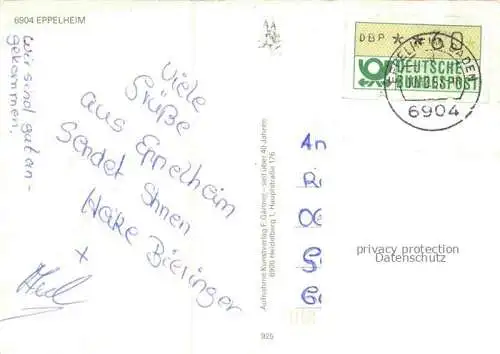 6904 EPPELHEIM
wir sind gut an-
gekommen,
Viele
Grüße
aus Eppelheim
Sendet Ihnen
Heike Bieringer
x
DBP * *60
DEUTSCHE
BUNDESPOST
6904
Aufnahme Kunstverlag F. Gärtner – seit über 40 Jahren
6900 Heidelberg 1, Hauptstraße 176
925
An
privacy protection
Datenschutz